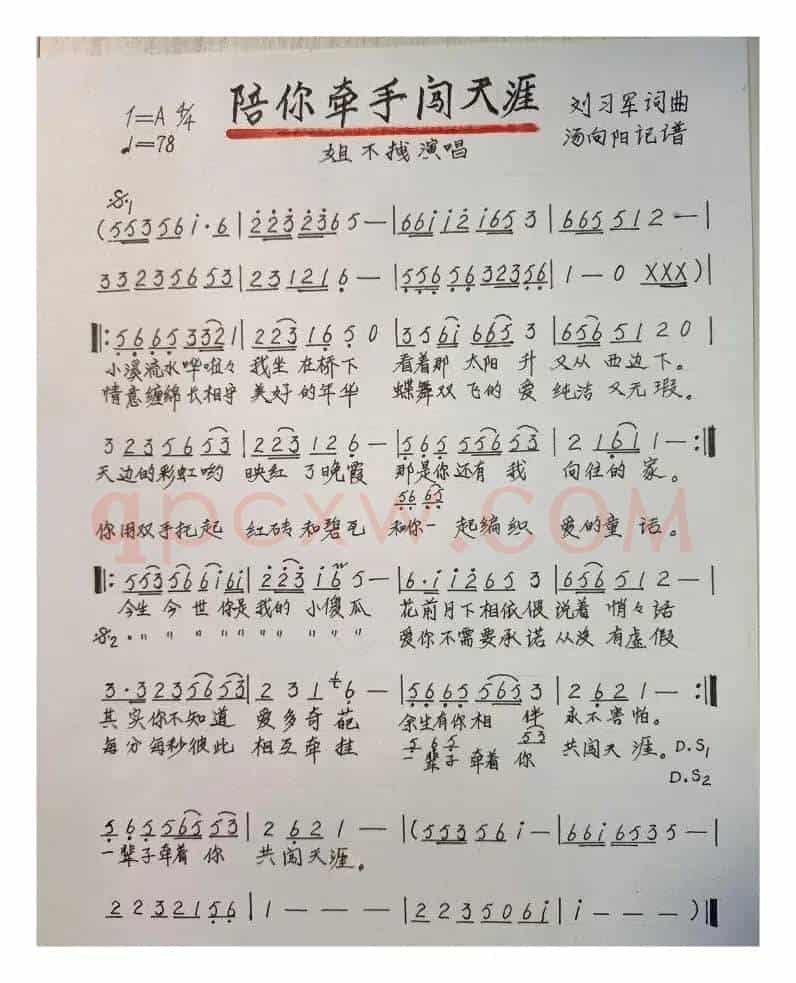 陪你牵手闯天涯
1=A 4/4
♩=78
刘习军词曲
汤向阳记谱
姐不拽演唱
𝄋1
(553561·6|2232365—|661121653|665512—|
33235653|231216—|55656323556|1—0 XXX)|
‖:56653321|223165 0|3561665 3|6565120|
小溪流水哗啦々 我坐在桥下 看着那 太阳 升 又从 西边下。
情意缠绵长相守 美好的年华 蝶舞双飞的爱 纯洁又无瑕。
3235653|223126—|56555653|21611—:‖
天边的彩虹哟 映红了晚霞 那是你还有我 向往的家。
56 65
你用双手托起 红砖和碧瓦 和你一起编织 爱的童话。
‖:553566161|223165—|6·11265 3|656512—|
今生今世你是我的小傻瓜 花前月下相依偎 说着悄々话
𝄋2 · " " " " " " " " " " 爱你不需要承诺 从没有虚假
3·3235653|2316—|56665565 3|2621—:‖
其实你不知道 爱多奇葩 余生有你相伴 永不害怕。
565 53
每分每秒彼此 相互牵挂 一辈子牵着你 共闯天涯。D.S1
D.S2
565565 53|2621—|(553561—|6616535—|
一辈子牵着你 共闯天涯。
2232156|1———|2235061|1———)‖
qpcxw.COM